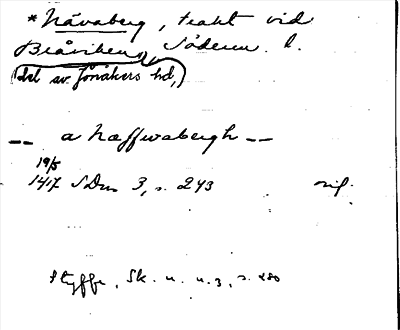 *Nävaberg, trakt vid
Bråviken, Söderm. l.
(del av Jönåkers hd,)
-- a Naffwabergh --
19/5
1417 SDns 3, s. 243 orig.
Styffe, Sk. u. u.3, s. 280